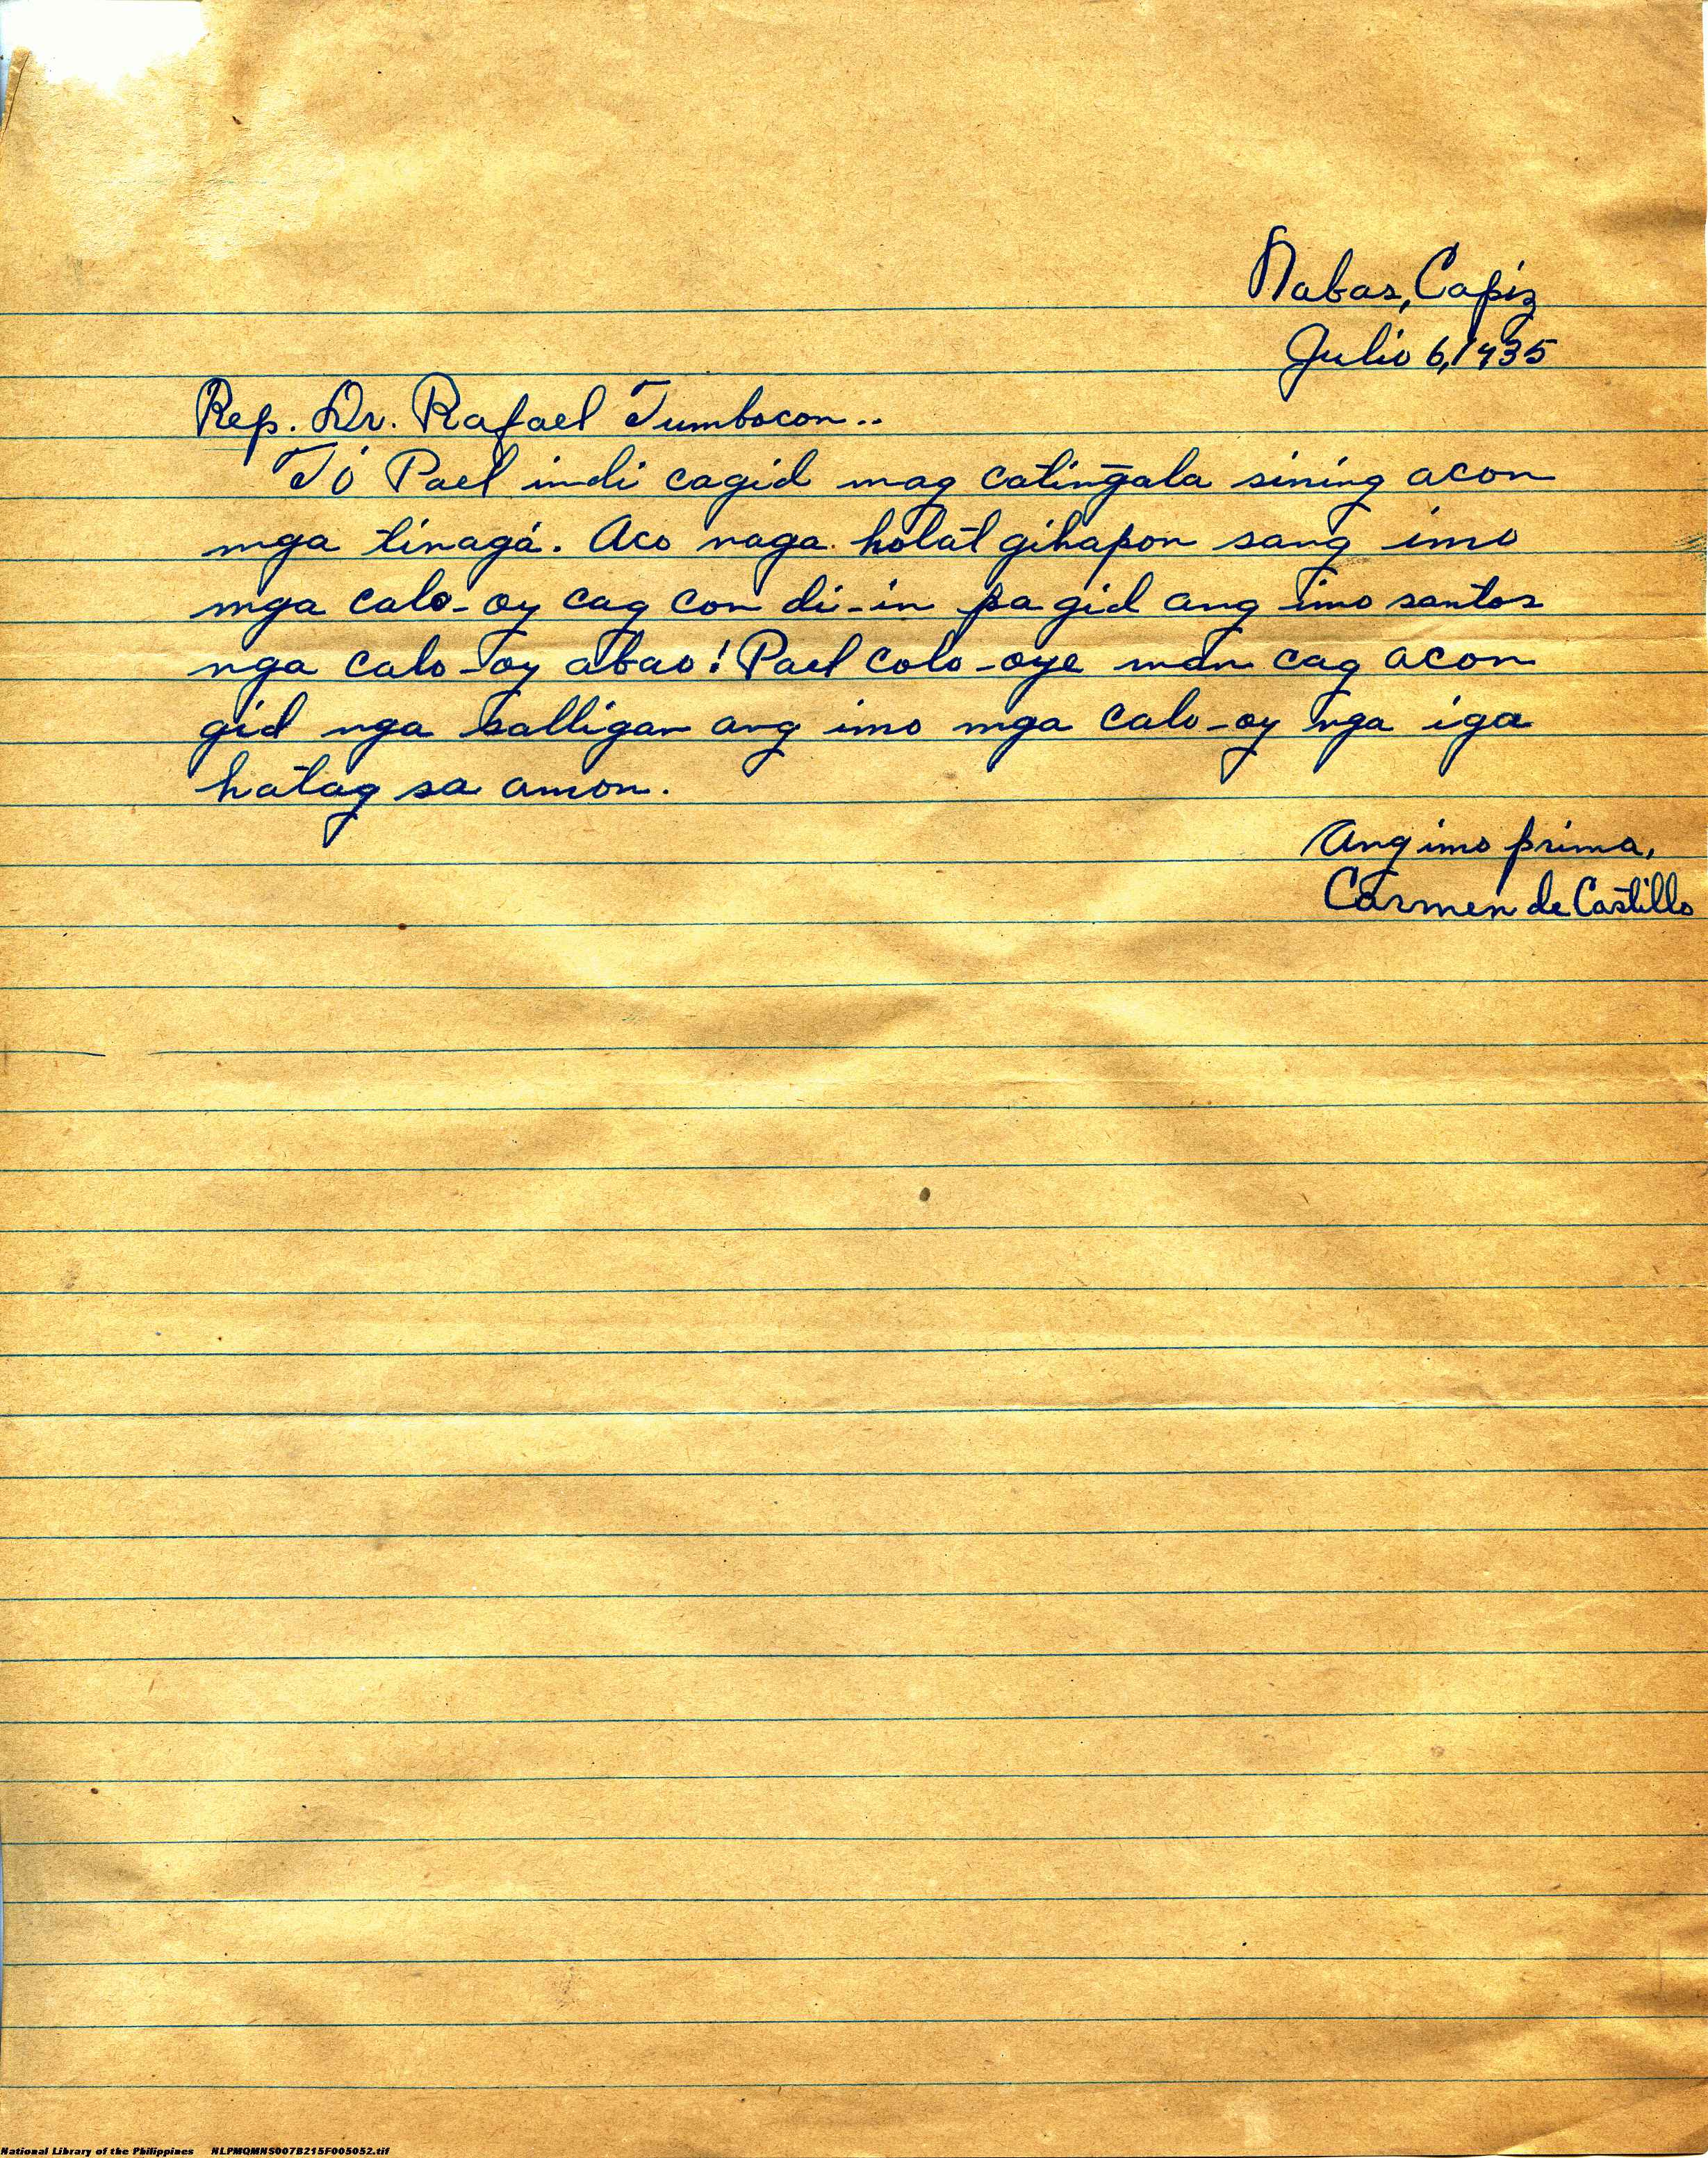 Nabas, Capiz
Julio 6, 1935
Rep. Dr. Rafael Tumbocon..
Tó Pael indi cagid mag cating̃ala sining acon
mga tinagá. Aco naga holat gihapon sang imo
mga calo-oy cag con di-in pa gid ang imo santos
nga calo-oy abao! Pael colo-oye man cag acon
gid nga balligan ang imo mga calo-oy nga iga
hatag sa amon.
Ang imo prima,
Carmen de Castillo
National Library of the Philippines NLPMQMNS007B215F005052.tif